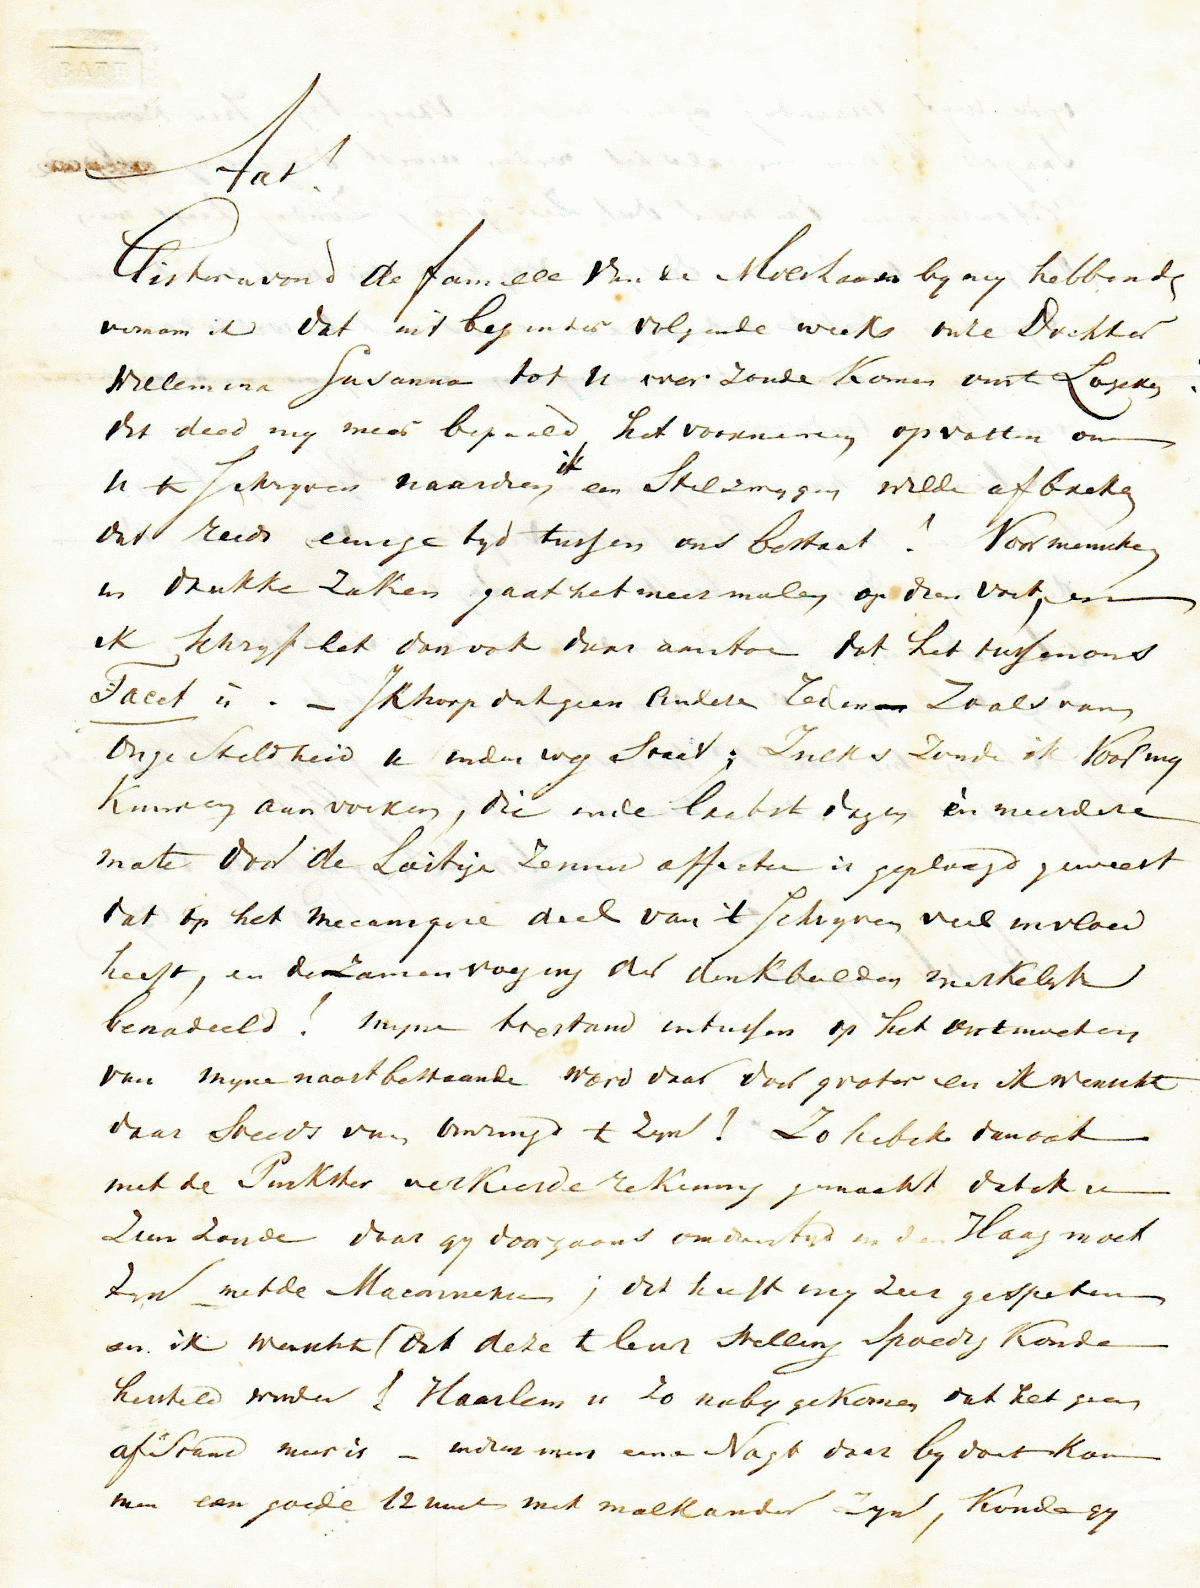 Aat!
Gisteravond de famielle van de Moerhaaven by my hebbende
vernam ik dat uit begin der volgende weeks onze Dochter
Willemina Susanna tot U over zoude komen om te Logeren
dit deed my meer bepaald het voornemen opvatten om
U te Schryven naardien ik een Stilzwygen wilde afbreken
dat reeds eenige tyd tussen ons bestaat ! Voornemens
in drukke zaken gaat het meermalen op dien voet, en
ik schryf het dan ook daar aan toe dat het tussen ons
Tacet is . — Ik hoop dat geen andere Reden Zoals van
Ongesteldheid u in den weg Staat ; Zulks Zoude ik Voor my
Kunnen aanvoeren , die in de laatste dagen in meerdere
mate door de Lastige Zenuw affectie is geplaagd geweest
dat op het mecanique deel van 't Schryven veel invloed
heeft , en de Zamenvoeging der denkbeelden merkelyk
benadeeld ! myne toestand intussen op het ontmoeten
van myne naastbestaande word daar door groter en ik wensche
daar Steeds van omringd te Zyn ! Zo heb ik dan ook
met de Pinkster verkeerde rekening gemaakt dat ik u
Zien Zoude daar gy doorgaans om dien tyd in den Haag moet
Zyn met de Maconnerie ; dit heeft my Zeer gespeten
en ik wensche dat deze te leur stelling Spoedig Konde
hersteld worden ! Haarlem is Zo naby gekomen dat het geen
afstand meer is — indien men eene Nagt daar by doet Kan
men een goede 12 uur met malkander Zyn , Konde gy